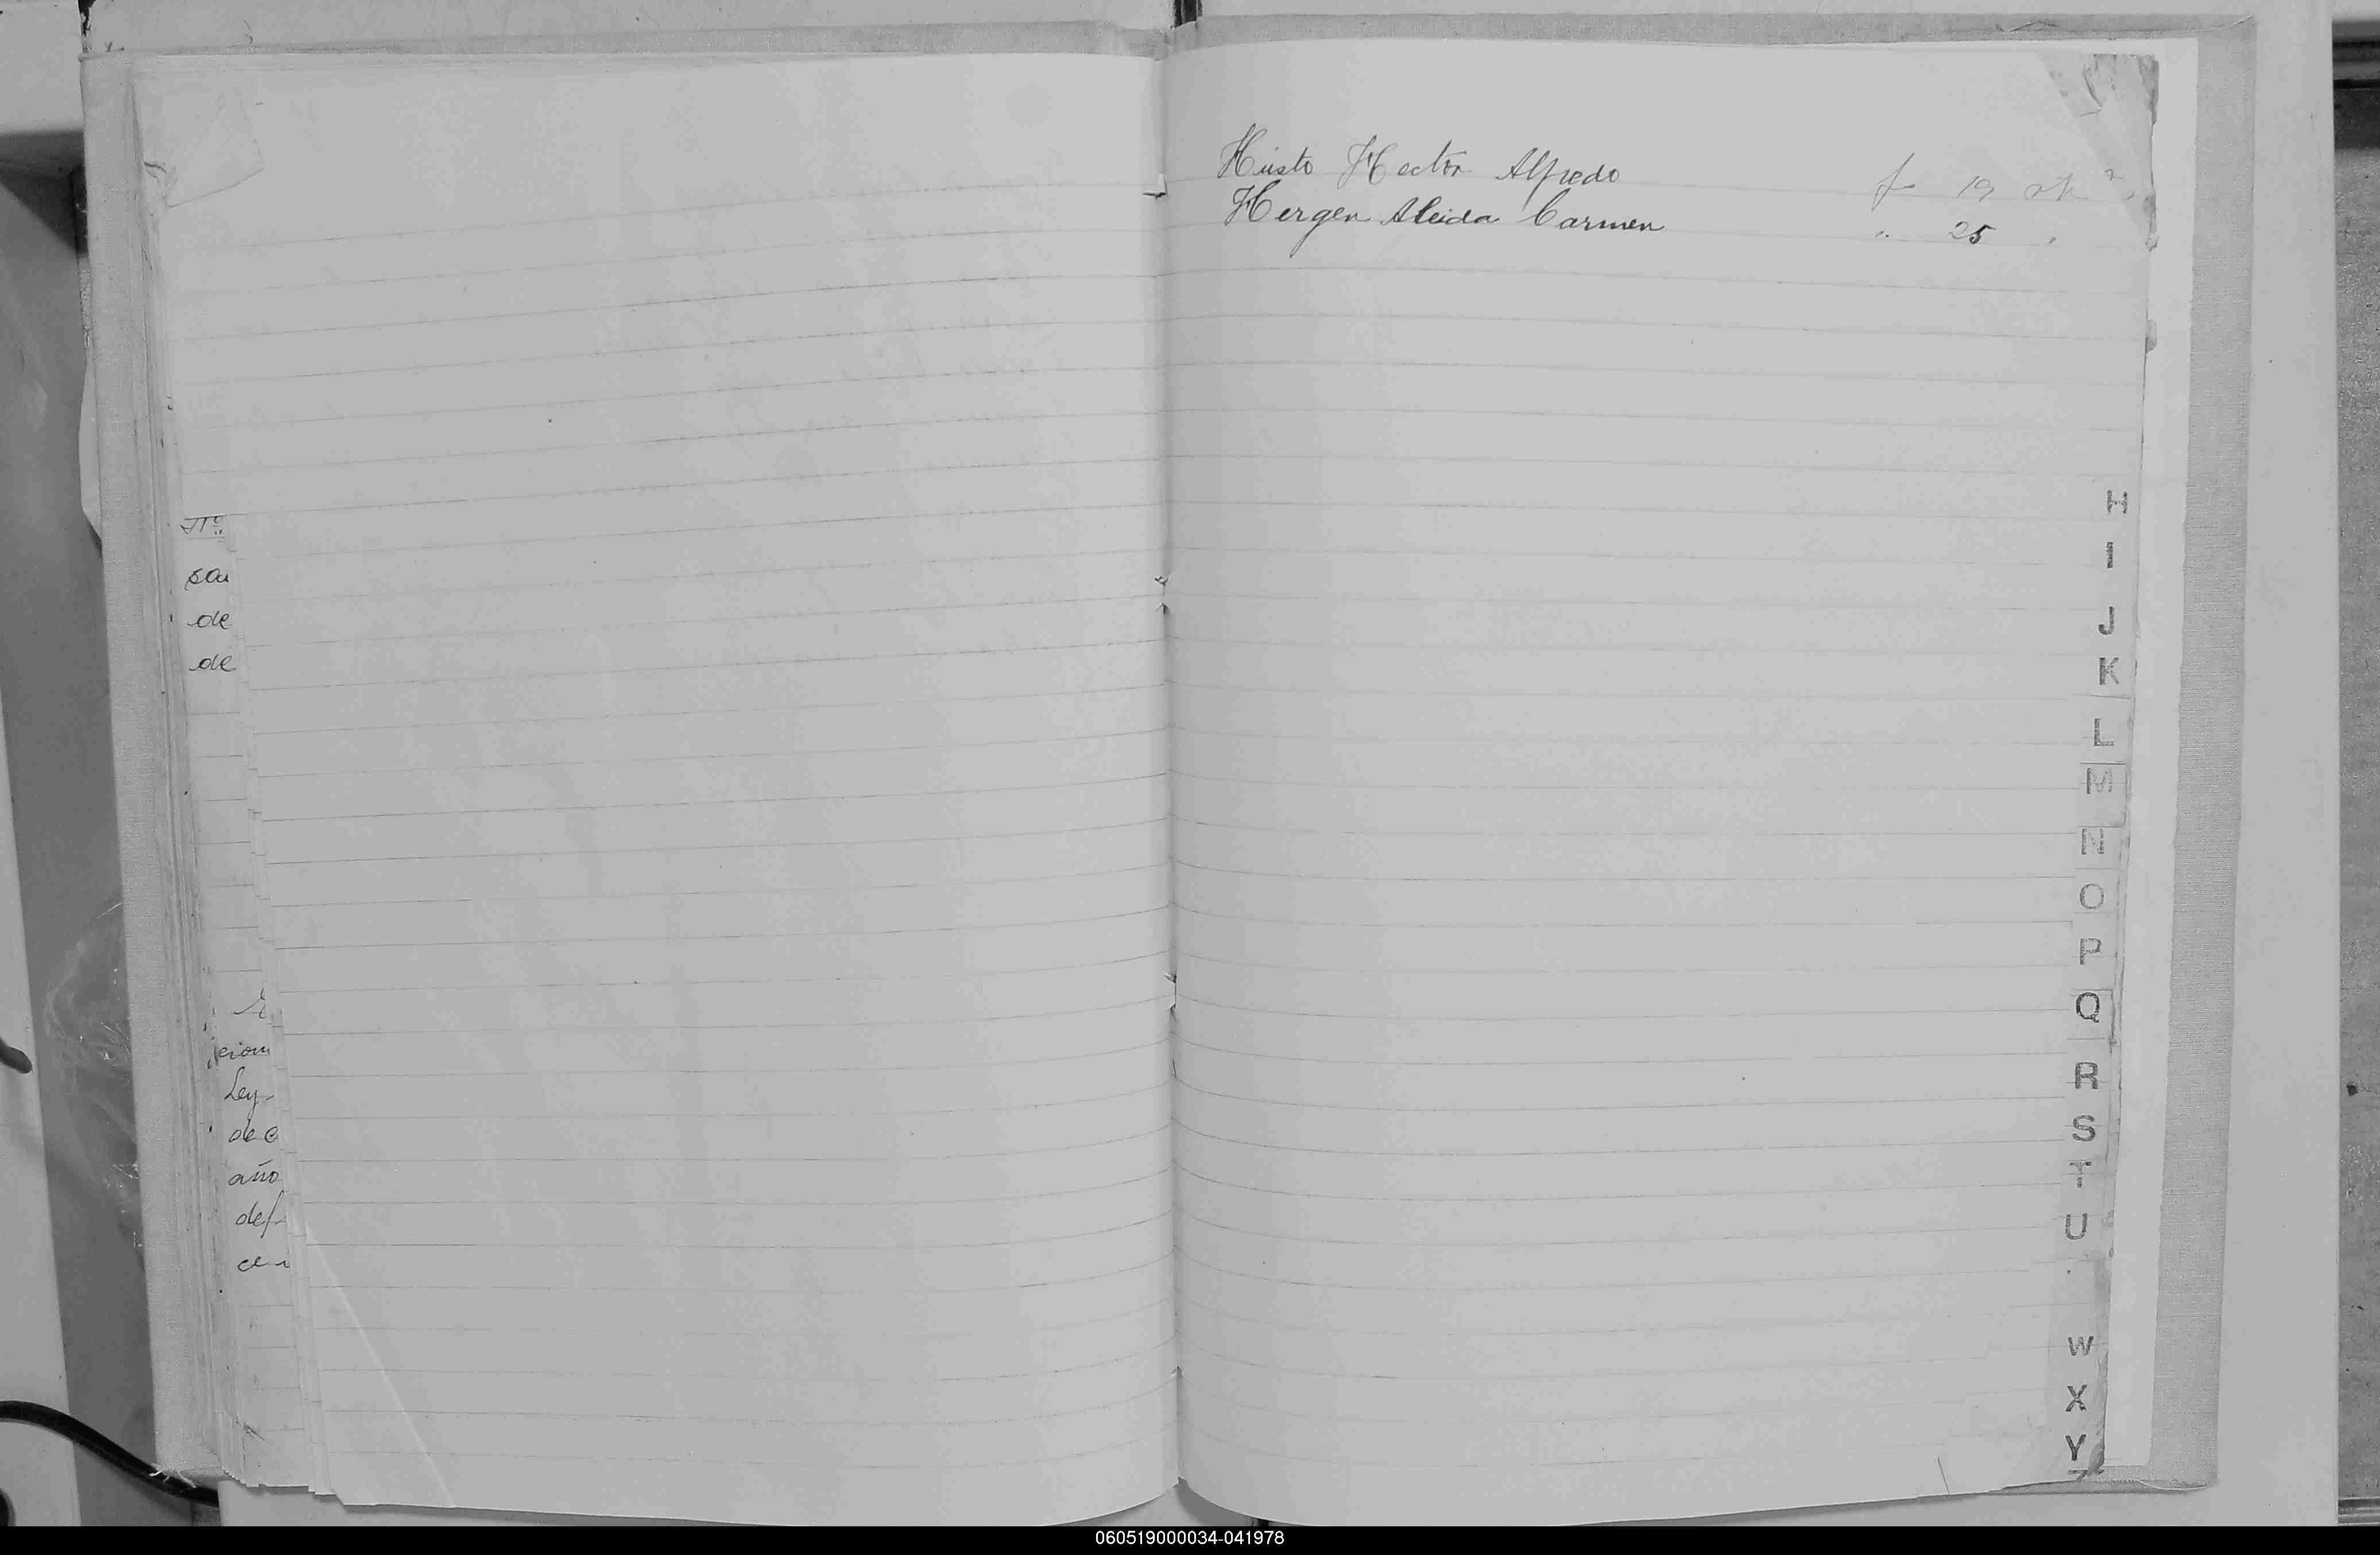 Husto Hector Alfredo f 19
Hergen Aleida Carmen " 25 "
Nº
sau
de
de
cion
Ley
de c
año
def
H
I
J
K
L
M
N
O
P
Q
R
S
T
U
W
X
Y
Z
060519000034-041978